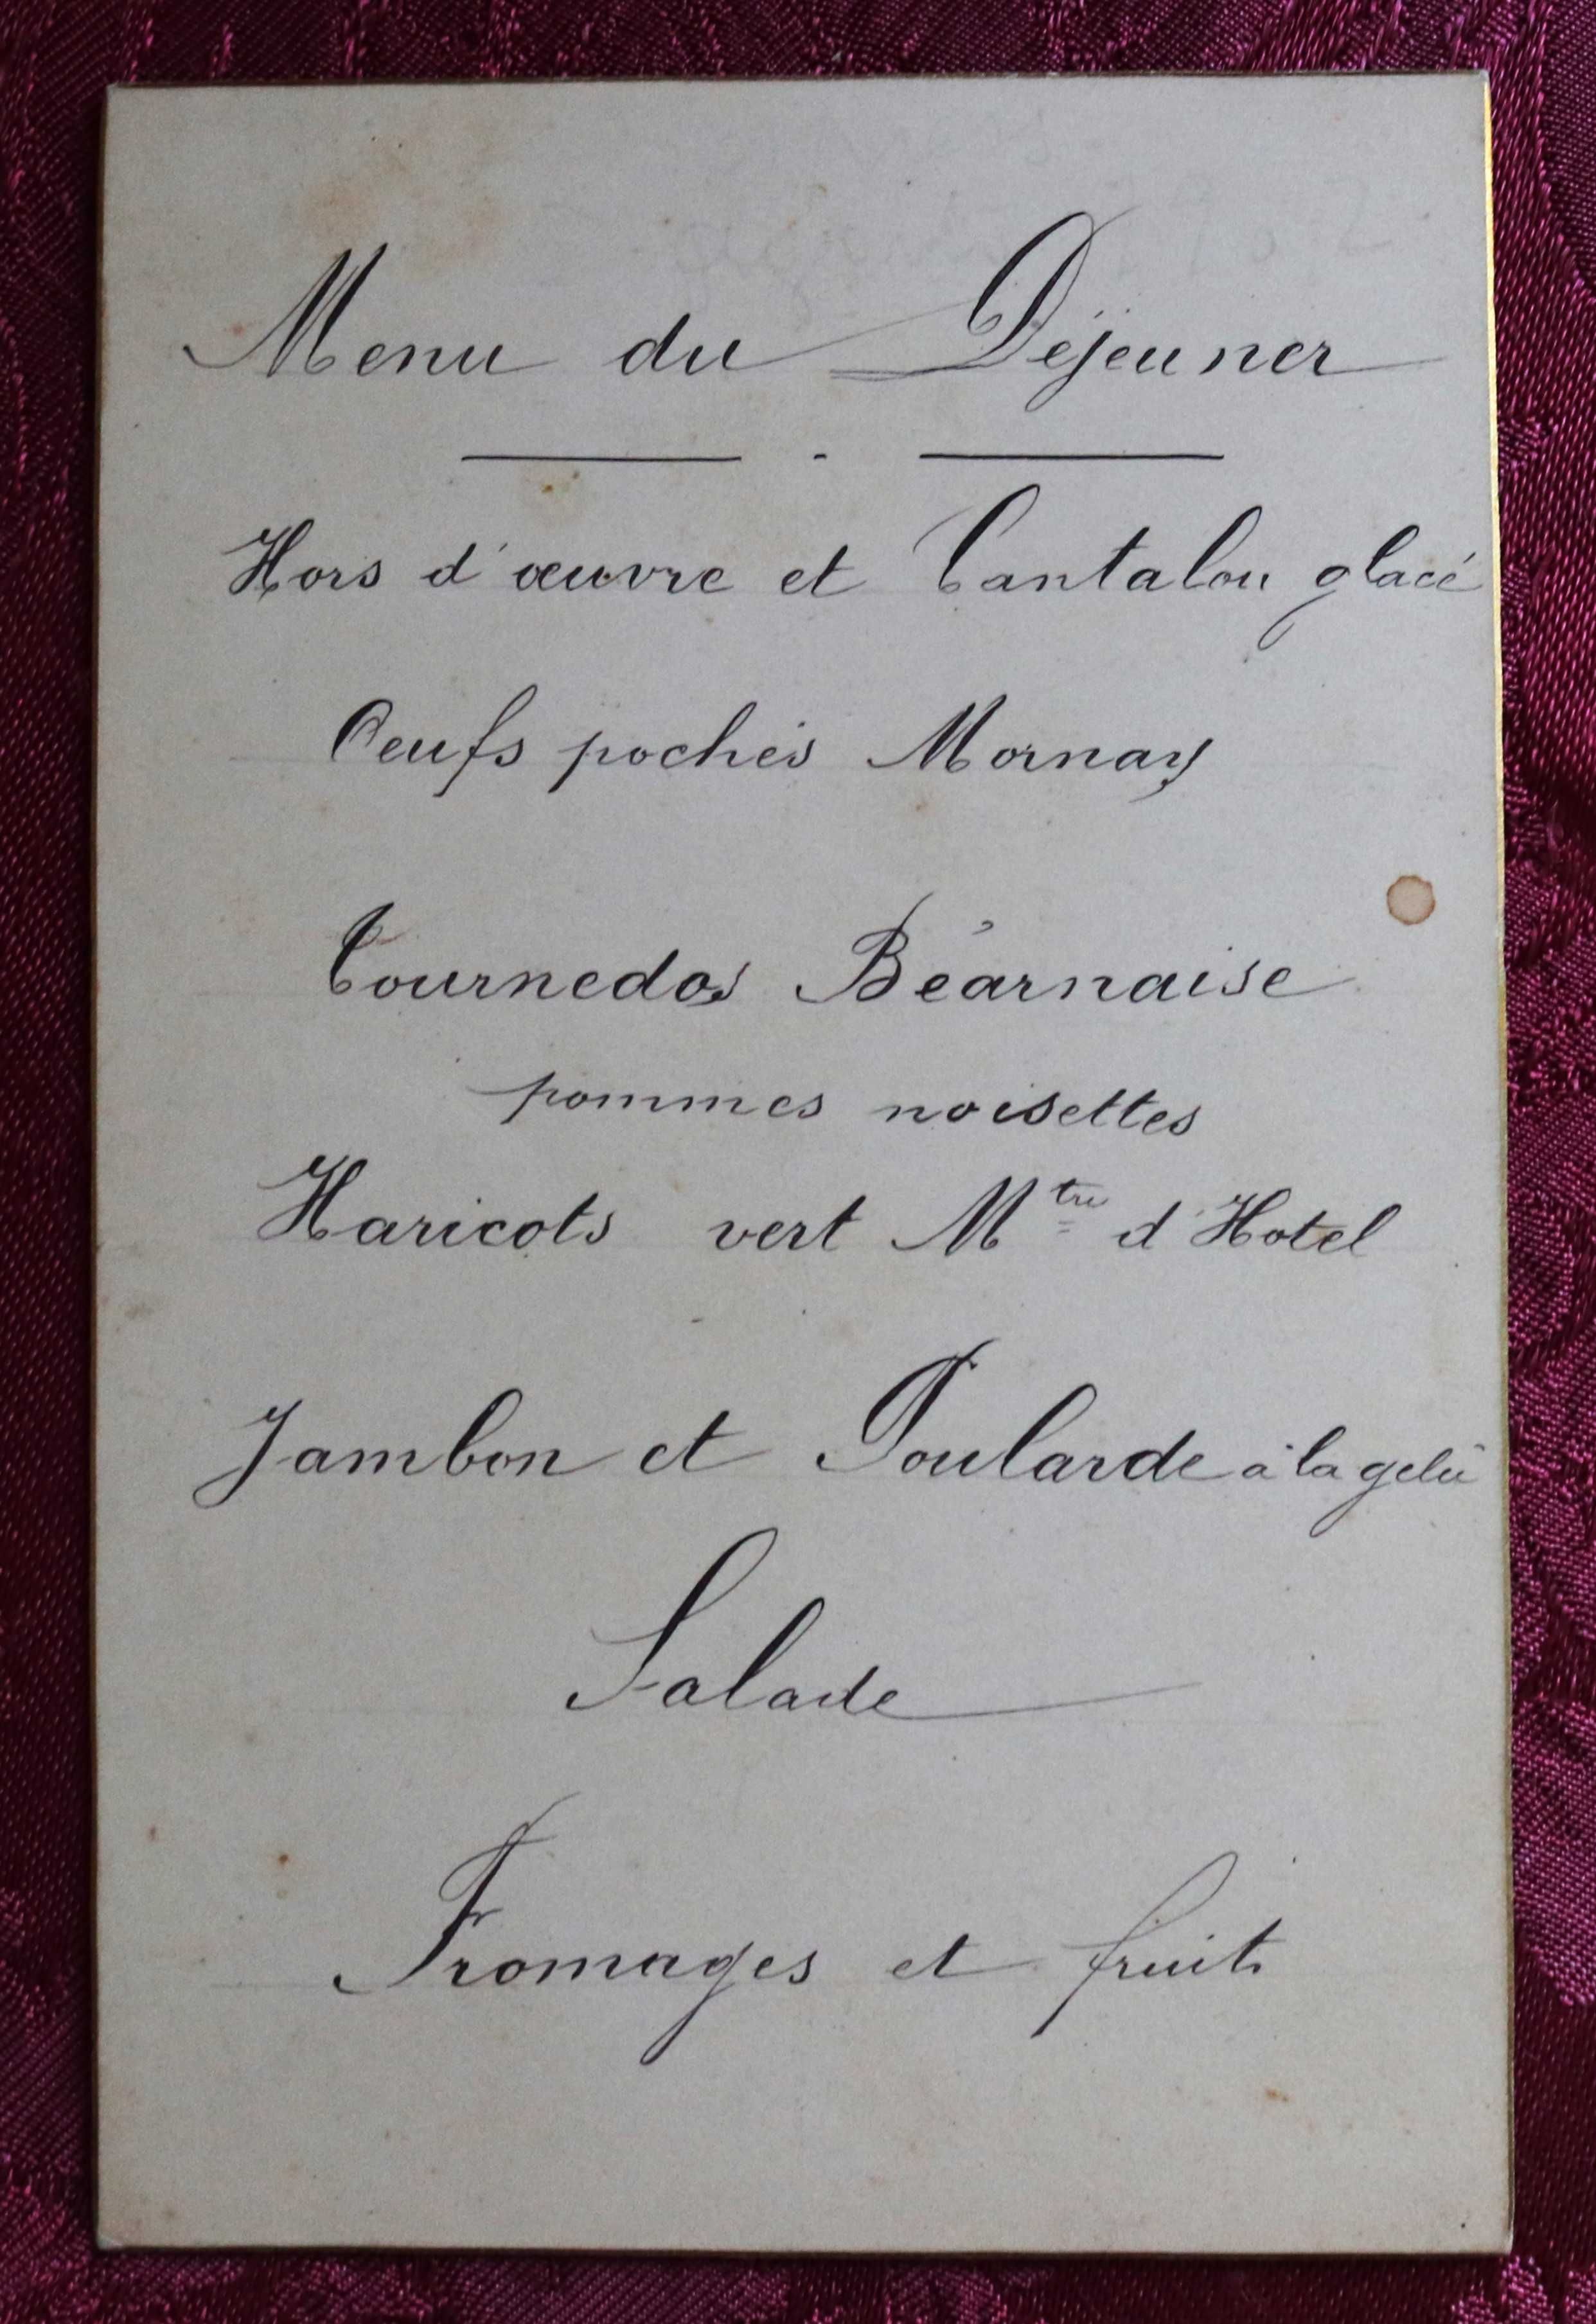 Menu du Déjeuner
Hors d'œuvre et Cantalou glacé
Oeufs pochés Mornay
Tournedos Béarnaise
pommes noisettes
Haricots vert Mtre d'Hotel
Jambon et Poularde à la gelée
Salade
Fromages et fruits